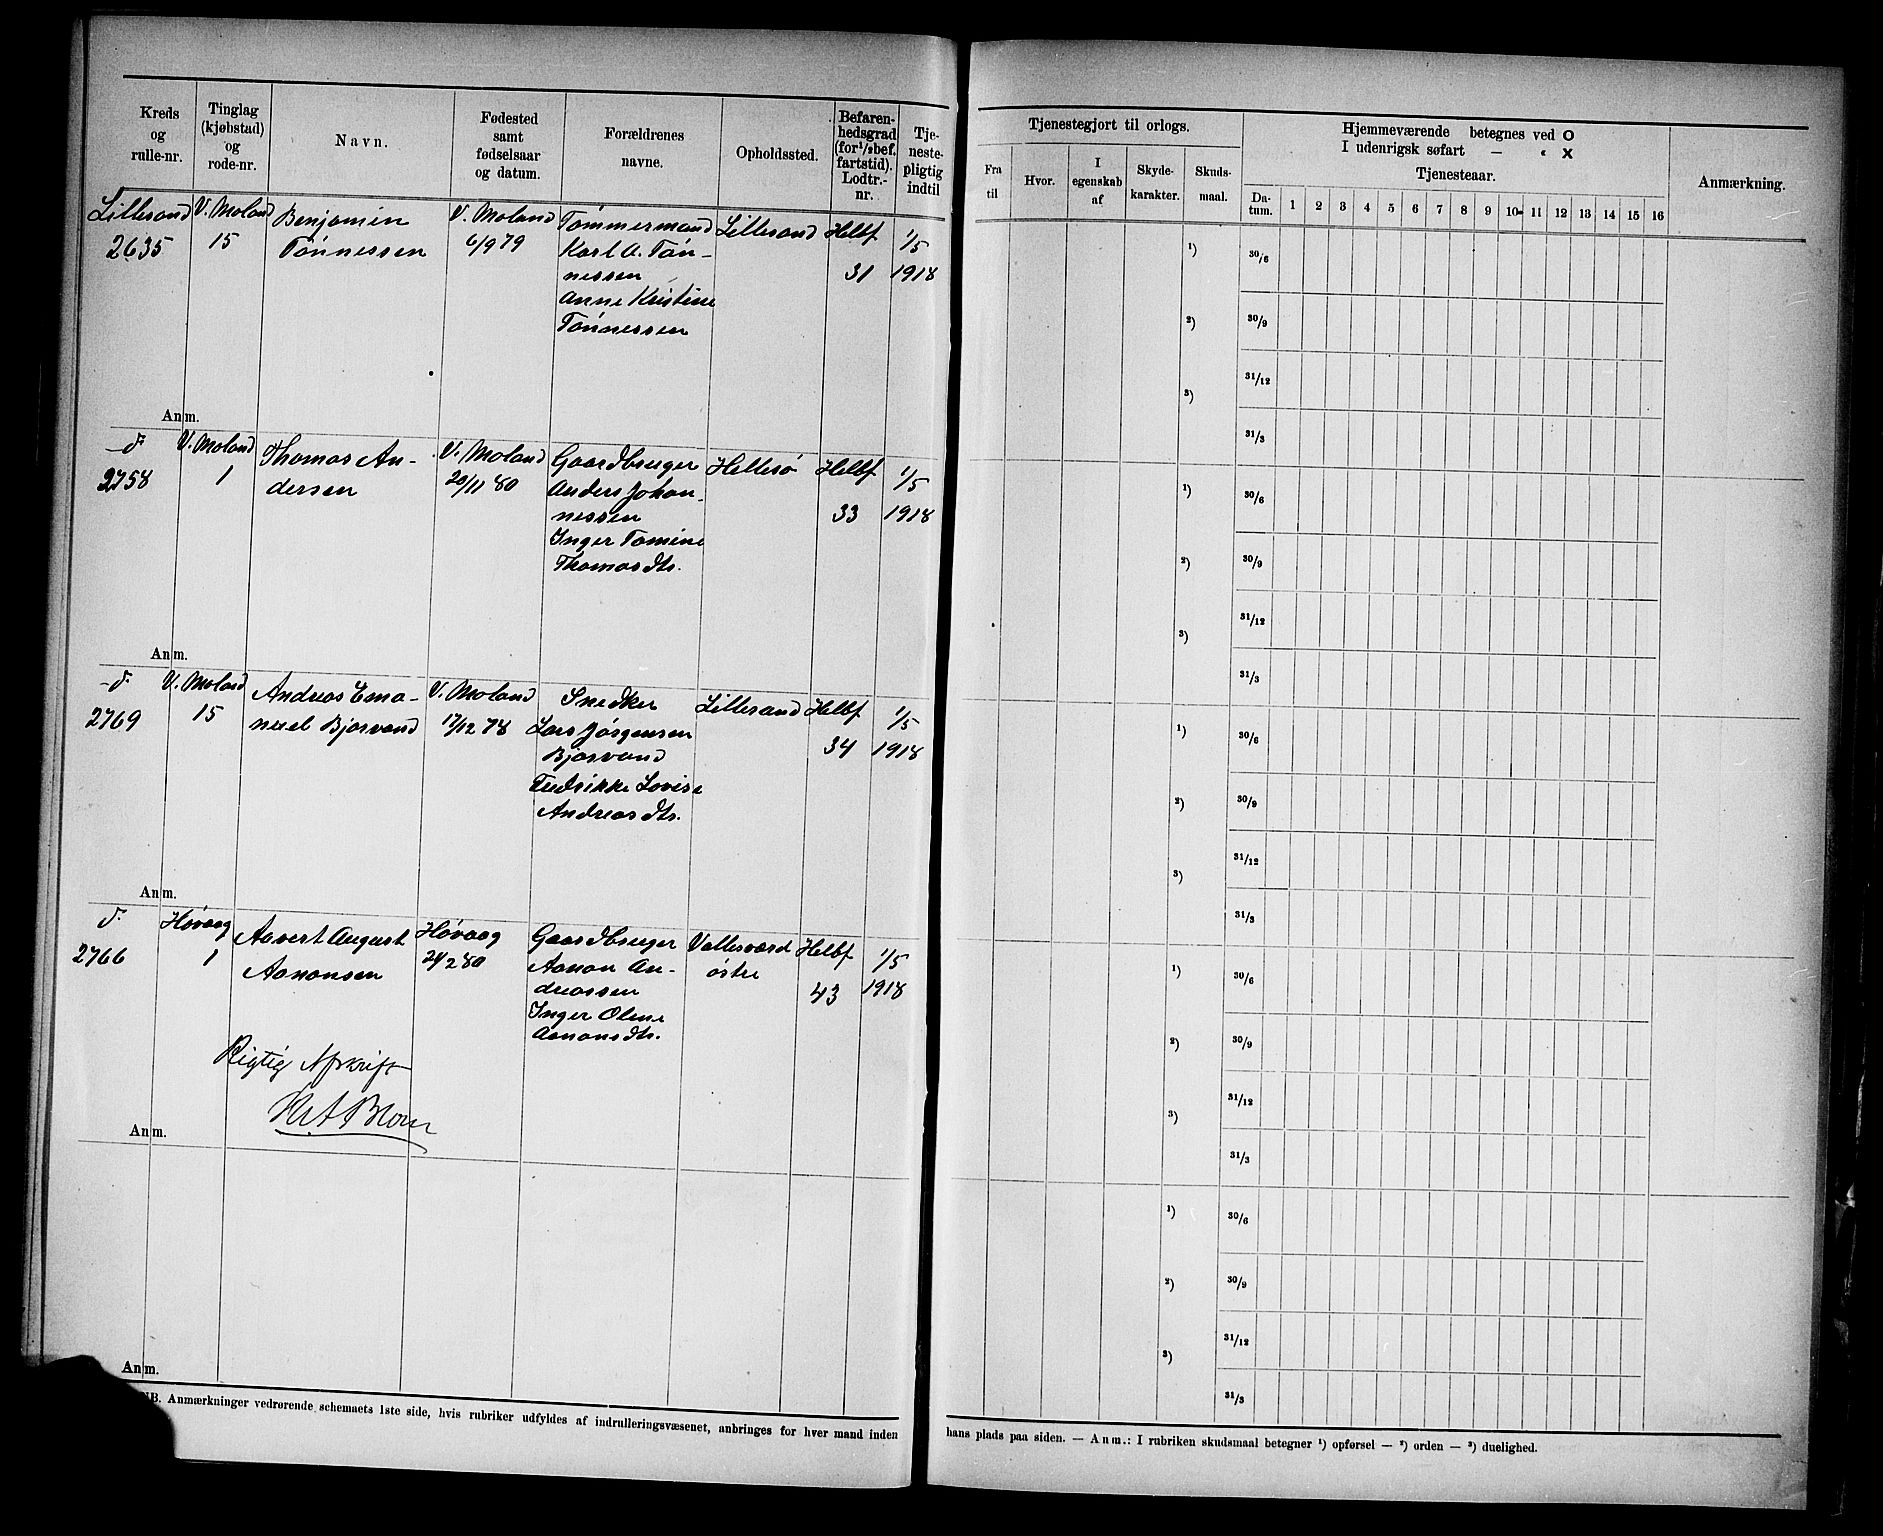 Kreds
og
rulle-nr.
Tinglag
(kjøbstad)
og
rode-nr.
Navn.
Fødested
samt
fødselsaar
og datum.
Forældrenes
navne.
Opholdssted.
Befaren-
hedsgrad
(for ½ bef.
fartstid).
Lodtr.-
nr.
Tje-
neste-
pligtig
indtil
Lillesand
2635
V. Moland
15
Benjamin
Tønnessen
V. Moland
6/9 79
Tømmermand
Karl A. Tøn-
nessen
Anne Kristine
Tønnessen
Lillesand
Helbf
31
1/5
1918
Anm.
d.
2758
V. Moland
1
Thomas An-
dersen
V. Moland
20/11 80
Gaardbruger
Anders Johan-
nessen
Inger Tomine
Thomasdtr.
Hellesø
Helbf
33
1/5
1918
Anm.
d.
2769
V. Moland
15
Andreas Ema-
nuel Bjorvand
V. Moland
17/12 78
Snedker
Lars Jørgensen
Bjorvand
Fredrikke Lovise
Andreasdtr.
Lillesand
Helbf
34
1/5
1918
Anm.
d.
2766
Høvaag
1
Aavert August
Aanonsen
Høvaag
24/2 80
Gaardbruger
Aanon An-
dreassen
Inger Oline
Aanonsdtr.
Vallesværd
østre
Helbf
43
1/5
1918
Rigtig Afskrift
Anm.
Anm.
NB. Anmærkninger vedrørende schemaets 1ste side, hvis rubriker udfyldes af indrulleringsvæsenet, anbringes for hver mand inden
Tjenestegjort til orlogs.
Fra
til
Hvor.
I
egenskab
af
Skyde-
karakter.
Skuds-
maal.
Hjemmeværende betegnes ved O
I udenrigsk søfart — " X
Tjenesteaar.
Da-
tum.
1 2 3 4 5 6 7 8 9 10 11 12 13 14 15 16
Anmærkning.
¹)
²)
³)
30/6
30/9
31/12
31/3
¹)
²)
³)
30/6
30/9
31/12
31/3
¹)
²)
³)
30/6
30/9
31/12
31/3
¹)
²)
³)
30/6
30/9
31/12
31/3
¹)
²)
³)
30/6
30/9
31/12
31/3
hans plads paa siden. — Anm.: I rubriken skudsmaal betegner ¹) opførsel — ²) orden — ³) duelighed.